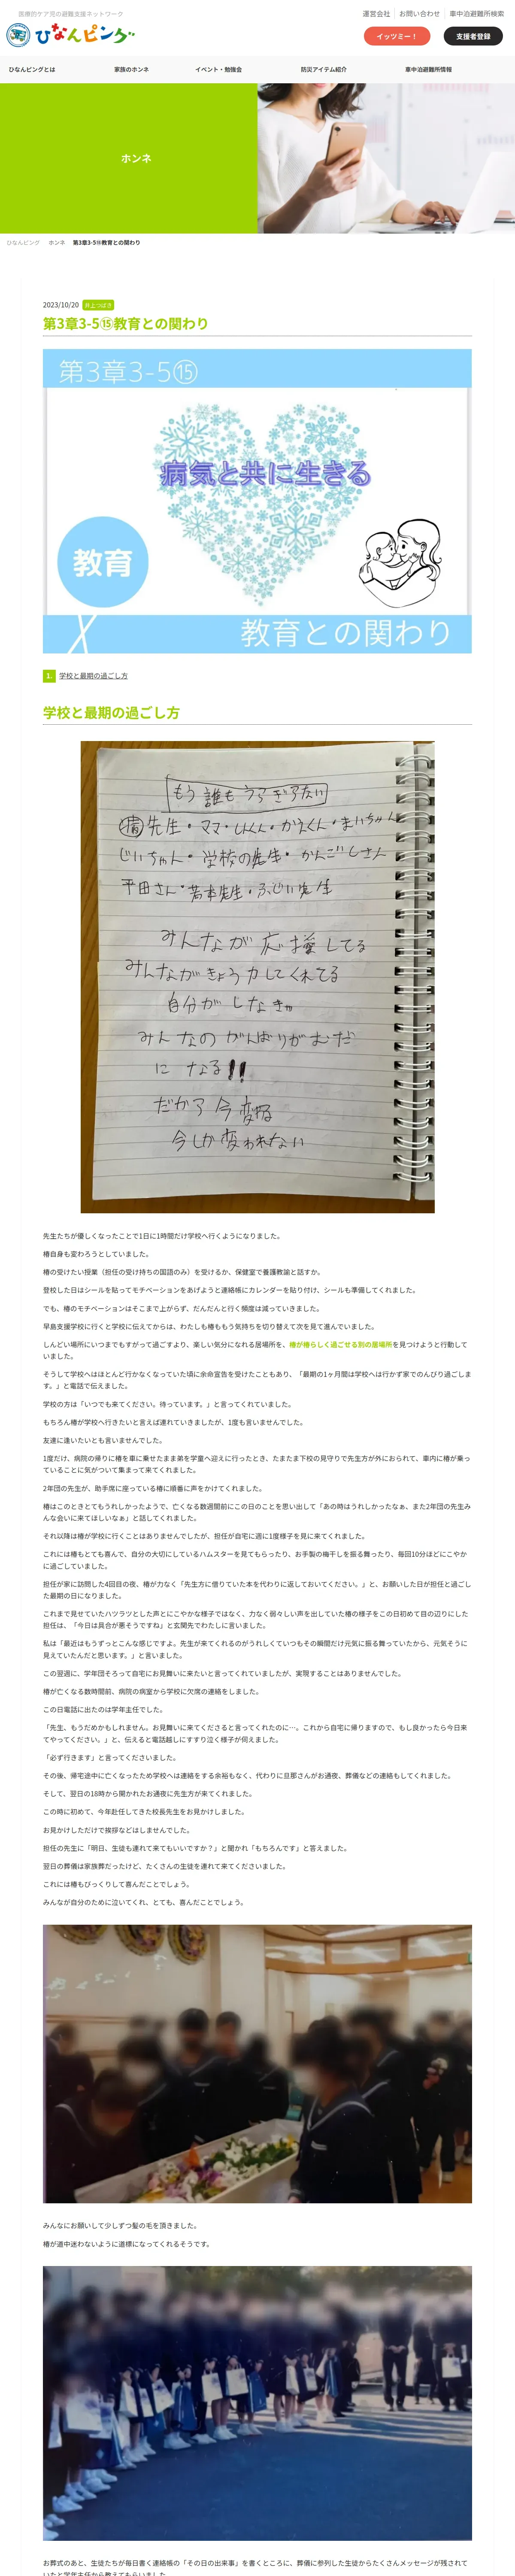 医療的ケア児の避難支援ネットワーク
ひなんピング
運営会社
お問い合わせ
車中泊避難所検索
イッツミー！
支援者登録
ひなんピングとは
家族のホンネ
イベント・勉強会
防災アイテム紹介
車中泊避難所情報
ホンネ
ひなんピング　ホンネ　第3章3-5⑮教育との関わり
2023/10/20 井上つばき
第3章3-5⑮教育との関わり
第3章3-5⑮
病気と共に生きる
教育
教育との関わり
1. 学校と最期の過ごし方
学校と最期の過ごし方
もう誰もうらぎらない
先生・ママ・
じいちゃん・学校の先生・かんごしさん
平田さん・若本先生・ふじい先生
みんなが応援してる
みんながきょう力してくれてる
自分がしなきゃ
みんなのがんばりがむだ
になる!!
だから今変わる
今しか変われない
先生たちが優しくなったことで1日に1時間だけ学校へ行くようになりました。
椿自身も変わろうとしていました。
椿の受けたい授業（担任の受け持ちの国語のみ）を受けるか、保健室で養護教諭と話すか。
登校した日はシールを貼ってモチベーションをあげようと連絡帳にカレンダーを貼り付け、シールも準備してくれました。
でも、椿のモチベーションはそこまで上がらず、だんだんと行く頻度は減っていきました。
早島支援学校に行くと学校に伝えてからは、わたしも椿ももう気持ちを切り替えて次を見て進んでいました。
しんどい場所にいつまでもすがって過ごすより、楽しい気分になれる居場所を、椿が椿らしく過ごせる別の居場所を見つけようと行動して
いました。
そうして学校へはほとんど行かなくなっていた頃に余命宣告を受けたこともあり、「最期の1ヶ月間は学校へは行かず家でのんびり過ごしま
す。」と電話で伝えました。
学校の方は「いつでも来てください。待っています。」と言ってくれていました。
もちろん椿が学校へ行きたいと言えば連れていきましたが、1度も言いませんでした。
友達に逢いたいとも言いませんでした。
1度だけ、病院の帰りに椿を車に乗せたまま弟を学童へ迎えに行ったとき、たまたま下校の見守りで先生方が外におられて、車内に椿が乗っ
ていることに気がついて集まって来てくれました。
2年団の先生が、助手席に座っている椿に順番に声をかけてくれました。
椿はこのときとてもうれしかったようで、亡くなる数週間前にこの日のことを思い出して「あの時はうれしかったなぁ、また2年団の先生み
んな会いに来てほしいなぁ」と話してくれました。
それ以降は椿が学校に行くことはありませんでしたが、担任が自宅に週に1度様子を見に来てくれました。
これには椿もとても喜んで、自分の大切にしているハムスターを見てもらったり、お手製の梅干しを振る舞ったり、毎回10分ほどにこやか
に過ごしていました。
担任が家に訪問した4回目の夜、椿が力なく『先生方に借りていた本を代わりに返しておいてください。』と、お願いした日が担任と過ごし
た最期の日になりました。
これまで見せていたハツラツとした声とにこやかな様子ではなく、力なく弱々しい声を出していた椿の様子をこの日初めて目の辺りにした
担任は、「今日は具合が悪そうですね」と玄関先でわたしに言いました。
私は「最近はもうずっとこんな感じですよ。先生が来てくれるのがうれしくていつもその瞬間だけ元気に振る舞っていたから、元気そうに
見えていたんだと思います。」と言いました。
この翌週に、学年団そろって自宅にお見舞いに来たいと言ってくれていましたが、実現することはありませんでした。
椿が亡くなる数時間前、病院の病室から学校に欠席の連絡をしました。
この日電話に出たのは学年主任でした。
「先生、もうだめかもしれません。お見舞いに来てくださると言ってくれたのに…。これから自宅に帰りますので、もし良かったら今日来
てやってください。」と、伝えると電話越しにすすり泣く様子が伺えました。
「必ず行きます」と言ってくださいました。
その後、帰宅途中に亡くなったため学校へは連絡をする余裕もなく、代わりに旦那さんがお通夜、葬儀などの連絡もしてくれました。
そして、翌日の18時から開かれたお通夜に先生方が来てくれました。
この時に初めて、今年赴任してきた校長先生をお見かけしました。
お見かけしただけで挨拶などはしませんでした。
担任の先生に「明日、生徒も連れて来てもいいですか？」と聞かれ「もちろんです」と答えました。
翌日の葬儀は家族葬だったけど、たくさんの生徒を連れて来てくださいました。
これには椿もびっくりして喜んだことでしょう。
みんなが自分のために泣いてくれ、とても、喜んだことでしょう。
みんなにお願いして少しずつ髪の毛を頂きました。
椿が道中迷わないように道標になってくれるそうです。
お葬式のあと、生徒たちが毎日書く連絡帳の「その日の出来事」を書くところに、葬儀に参列した生徒からたくさんメッセージが残されて
いたと学年主任から教えてもらいました。